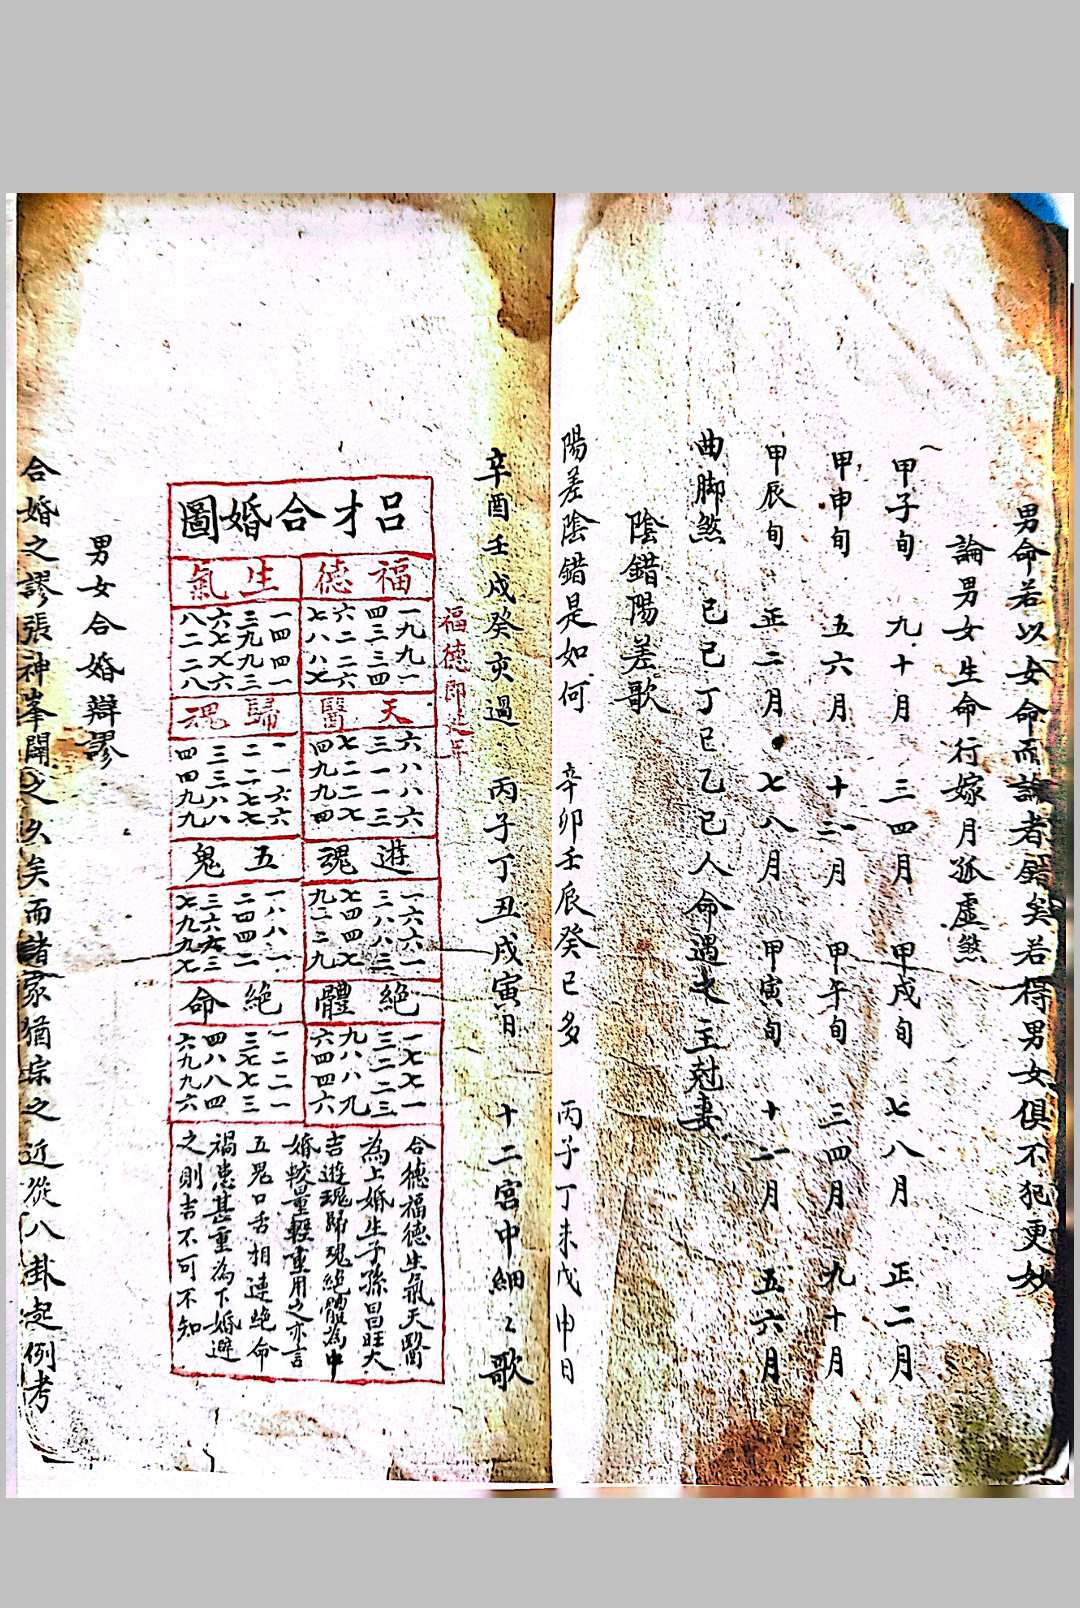 男命若以女命而論者錯矣若得男女俱不犯更妙
論男女生命行嫁月孤虛煞
甲子旬 九十月 三四月 甲戌旬 七八月 正二月
甲申旬 五六月 十二月 甲午旬 三四月 九十月
甲辰旬 正二月 七八月 甲寅旬 十二月 五六月
曲脚煞 己巳丁巳乙巳人命遇之主尅妻
陰錯陽差歌
陽差陰錯是如何 辛卯壬辰癸巳多 丙子丁未戊申日
辛酉壬戌癸亥過 丙子丁丑戌寅日 十二宮中細々歌
福德即延年
呂才合婚圖
福德
一九九一
四三三四
六二二六
七八八七
生氣
一四四一
三九九三
六七七六
八二二八
天醫
六八八六
三一一三
七二二七
四九九四
歸魂
一一六六
二二七七
三三八八
四四九九
遊魂
一六六一
三八八三
七四四七
九二二九
五鬼
一八八一
二四四二
三六六三
七九九七
絕體
一七七一
三二二三
九八八九
六四四六
絕命
一二二一
三七七三
四八八四
六九九六
合德福德生氣天醫
為上婚生子孫昌旺大
吉遊魂歸魂絕體為中
婚較量輕重用之亦言
五鬼口舌相連絕命
禍患甚重為下婚避
之則吉不可不知
男女合婚辯謬
合婚之謬張神峯闢之久矣而諸家猶宗之近從八卦起例考